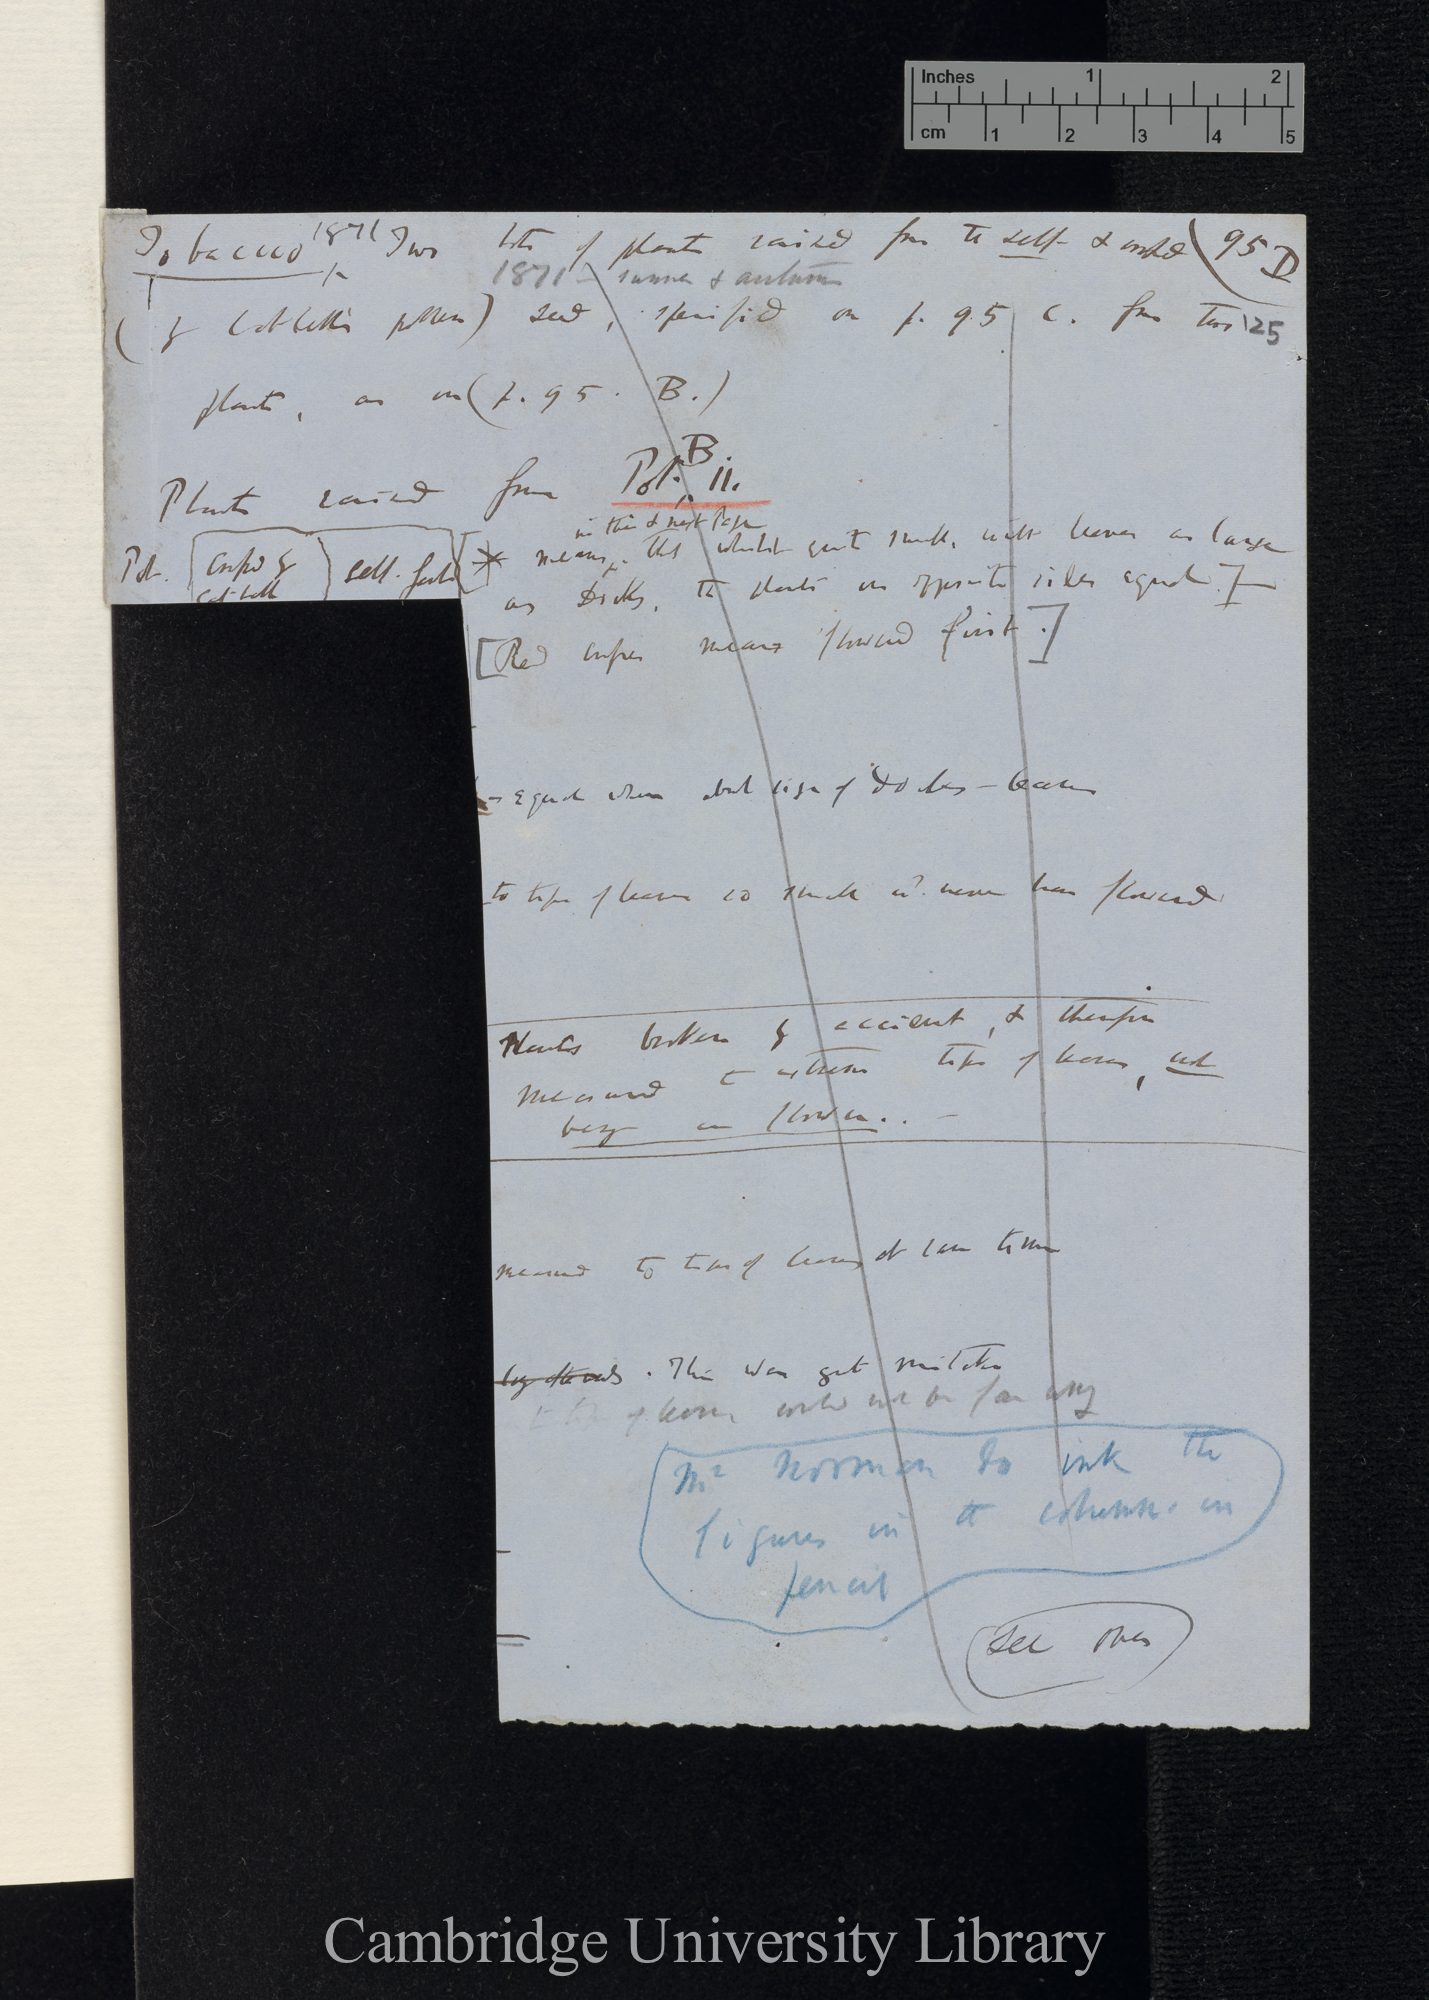 Inches 1 2
cm 1 2 3 4 5
Tobacco 1871 Two lots of plants raised from the self- & crossed (95 D
1871 – summer & autumn
(by Cattell's pollen) seed, specified on p. 95 C. from two 125
plants, as on (p. 95. B.)
Plants raised from Pot. B. II.
in this & next Page
Pot. crossed by Cattell self-fert [* means that whilst quite small, with leaves as large
as Docks, the plants on opposite sides equal.]—
[Red crosses means flowered first.]
equal when about size of Docks-leaves
to tips of leaves so small & never have flowered
Plants broken by accident, & therefore
measured to extreme tips of leaves, not
being in flower. —
measured to tips of leaves at same time
This was quite mistake
to tips of leaves
Mr Norman to ink the
figures in the columns in
pencil
See over
Cambridge University Library